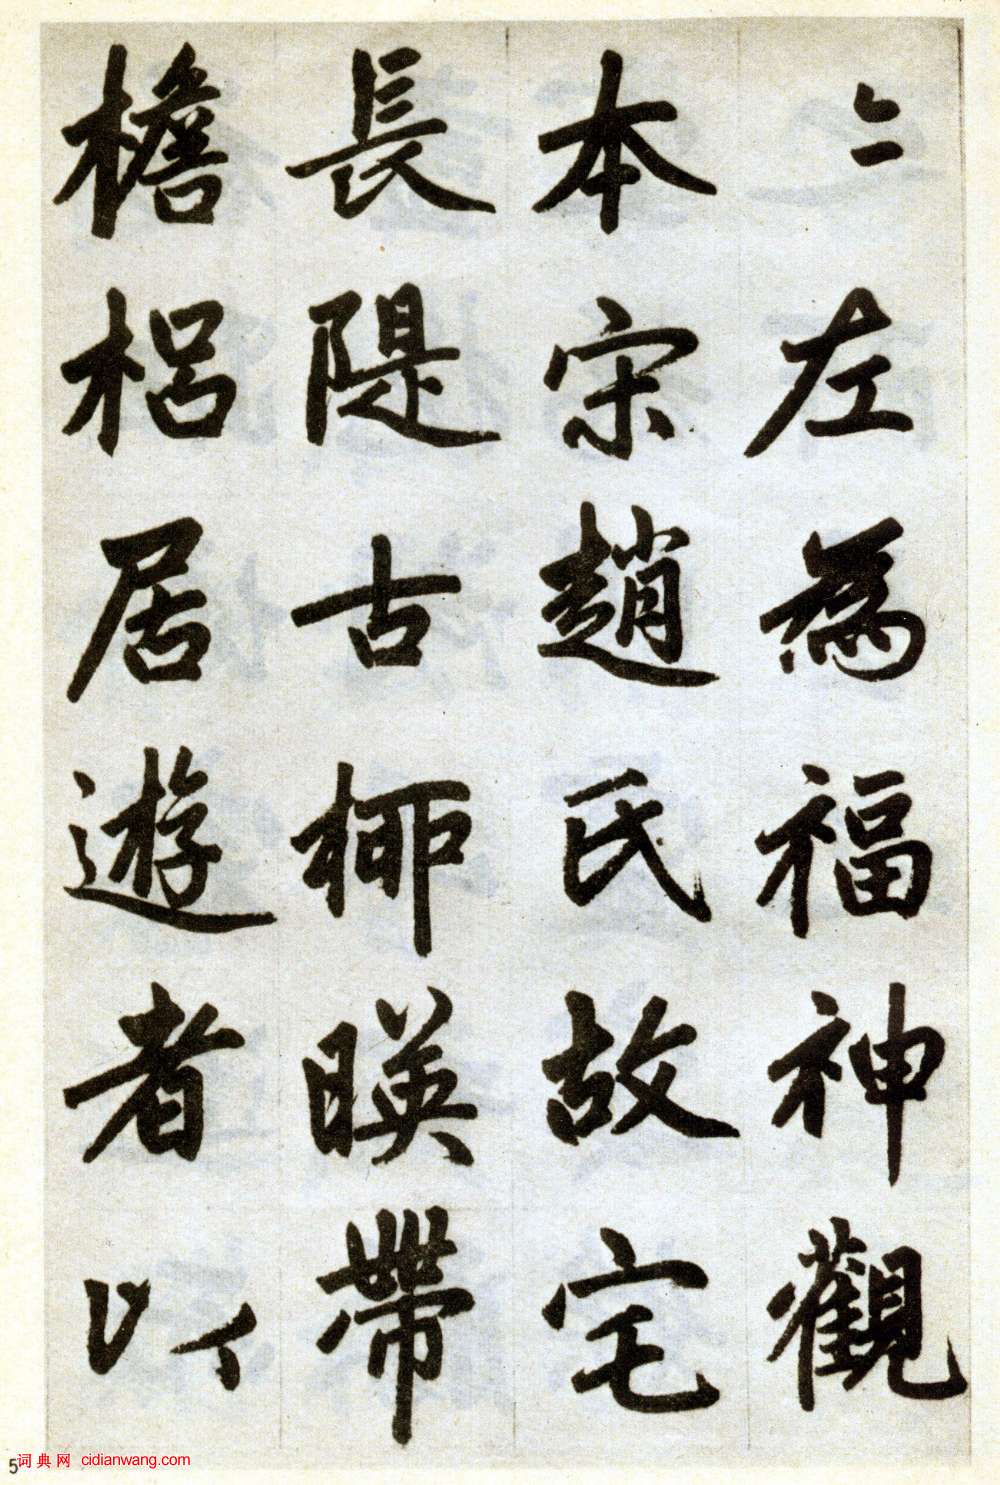 〻左為福神觀
本宋趙氏故宅
長隄古柳暎帶
檐梠居遊者以
5
词典网 cidianwang.com